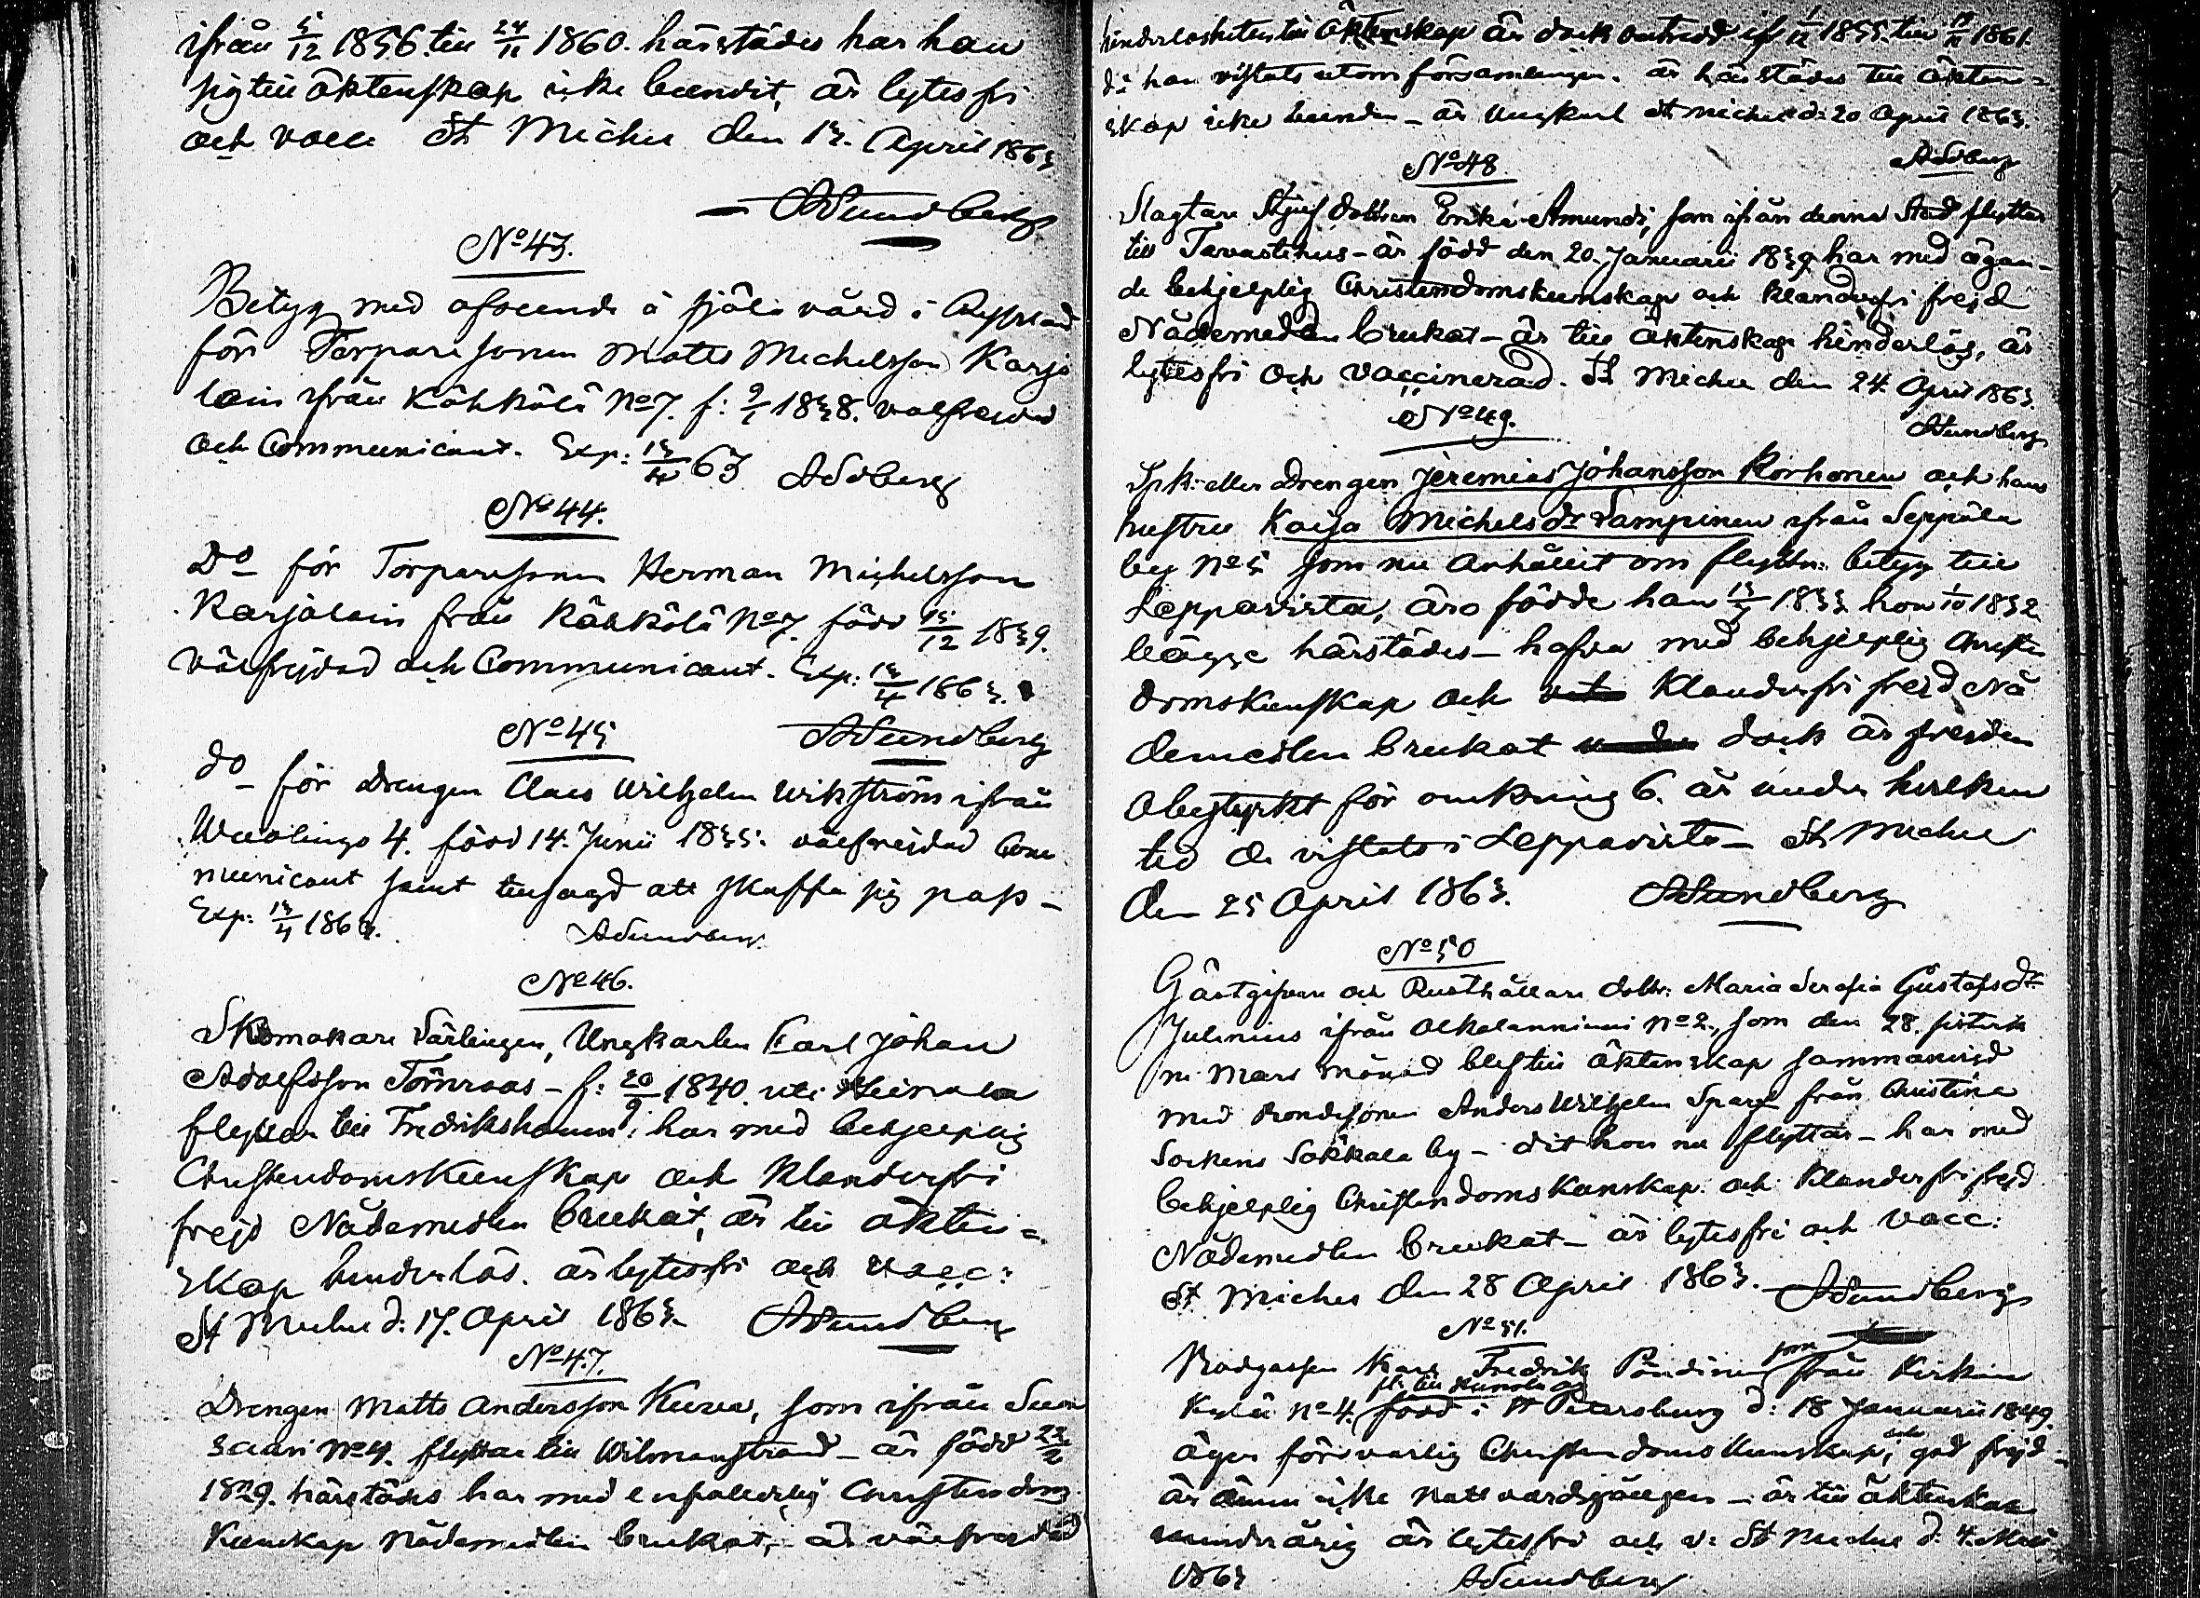 ifrån 5/12 1856. till 24/11 1860. härstädes har han
sig till äktenskap icke bundit, är lytesfri
och vacc: St Michel den 13. April 1863
ASundberg
No 43.
Betyg med afseende å själavård i Ryssland
för Torparesonen Matts Michelsson Karja
lain ifrån Kähkölä No 7. f: 9/1 1838. välfrejdad
och Communicant. Exp: 13/4 63 ASdberg
No 44.
Do för Torparesonen Herman Michelsson
Karjalain från Kähkölä No 7. född 15/12 1839.
välfrejdad och Communicant. Exp: 13/4 1863.
No 45 ASundberg
do för Drengen Claes Wilhelm Wikström ifrån
4. född 14. Junii 1835. välfrejdad Com
municant samt tillsagd att skaffa sig pass -
Exp: 13/4 1863. ASundberg
No 46.
Skomakare Lärlingen, Ungkarlen Karl Johan
Adolfsson Törnroos - f: 20/9 1840. uti Heinola
flyttar till Fredrikshamn; har med behjelplig
Christendomskunskap och klanderfri
frejd Nådemedlen brukat, är till äkten=
skap hinderlös. är lytesfri och vacc:
St Michel d: 17. April 1863. ASundberg
No 47.
Drengen Matts Andersson Kurva, som ifrån Suon
saari No 4. flyttar till Wilmanstrand - är född 22/2
1829. härstädes har med enfalldelig Christendoms
kunskap Nådemedlen brukat, är välfrejdad
hinderlösheten till Äktenskap är dock outredd if 1/12 1855. till 19/11 1861.
då han vistats utom församlingen. är härstädes till äkten=
skap icke bunden - är Ungkarl St Michel d: 20 April 1863.
ASdberg
No 48.
Slagtare Styfdottren Erika Amunds, som ifrån denna Stad flyttar
till Tavastehus - är född den 20. Januarii 1839 har med ägan-
de behjelplig Christendomskunskap och klanderfri frejd
Nådemedlen brukat - är till äktenskap hinderlös, är
lytesfri och vaccinerad. St Michel den 24. April 1863.
No 49. ASundberg
Spk: eller Drengen Jeremias Johansson Korhonen och hans
hustru Kaisa Michelsdr Lampinen ifrån Seppälä
by No 5 som nu anhållit om flyttn: betyg till
Leppävirta, äro födde han 13/3 1833 hon 1/10 1832
bägge härstädes - hafva med behjelplig Christen
domskunskap och klanderfri frejd Nå
demedlen brukat dock är frejden
obestyrkt för omkring 6. år under hvilken
tid de vistats i Leppävirta - St Michel
den 25 April 1863. ASundberg
No 50
Gästgifvare och Rusthållare dottr: Maria Serafia Gustafsdr
Julenius ifrån Alkalanniemi No 2, som den 28. sistvik
ne Mars månad blef till äktenskap sammanvigd
med Bondesonen Anders Wilhelm från Christina
Sockens Säkkälä by - dit hon nu flyttar - har med
behjelplig Christendoms kunskap och klanderfri frejd
Nådemedlen brukat - är lytesfri och vacc:
St Michel den 28 April 1863. ASundberg
No 51.
Karl Fredrik Pöndinen som från Kirkon
kylä No 4. född i St Petersburg d: 18 Januarii 1849.
äger försvarlig Christendoms kunskap, och god frejd -
är ännu icke nattvardsgången - är till äktenskap
minderårig är lytesfri och v: St Michel d: 4. Maii
1863 ASundberg